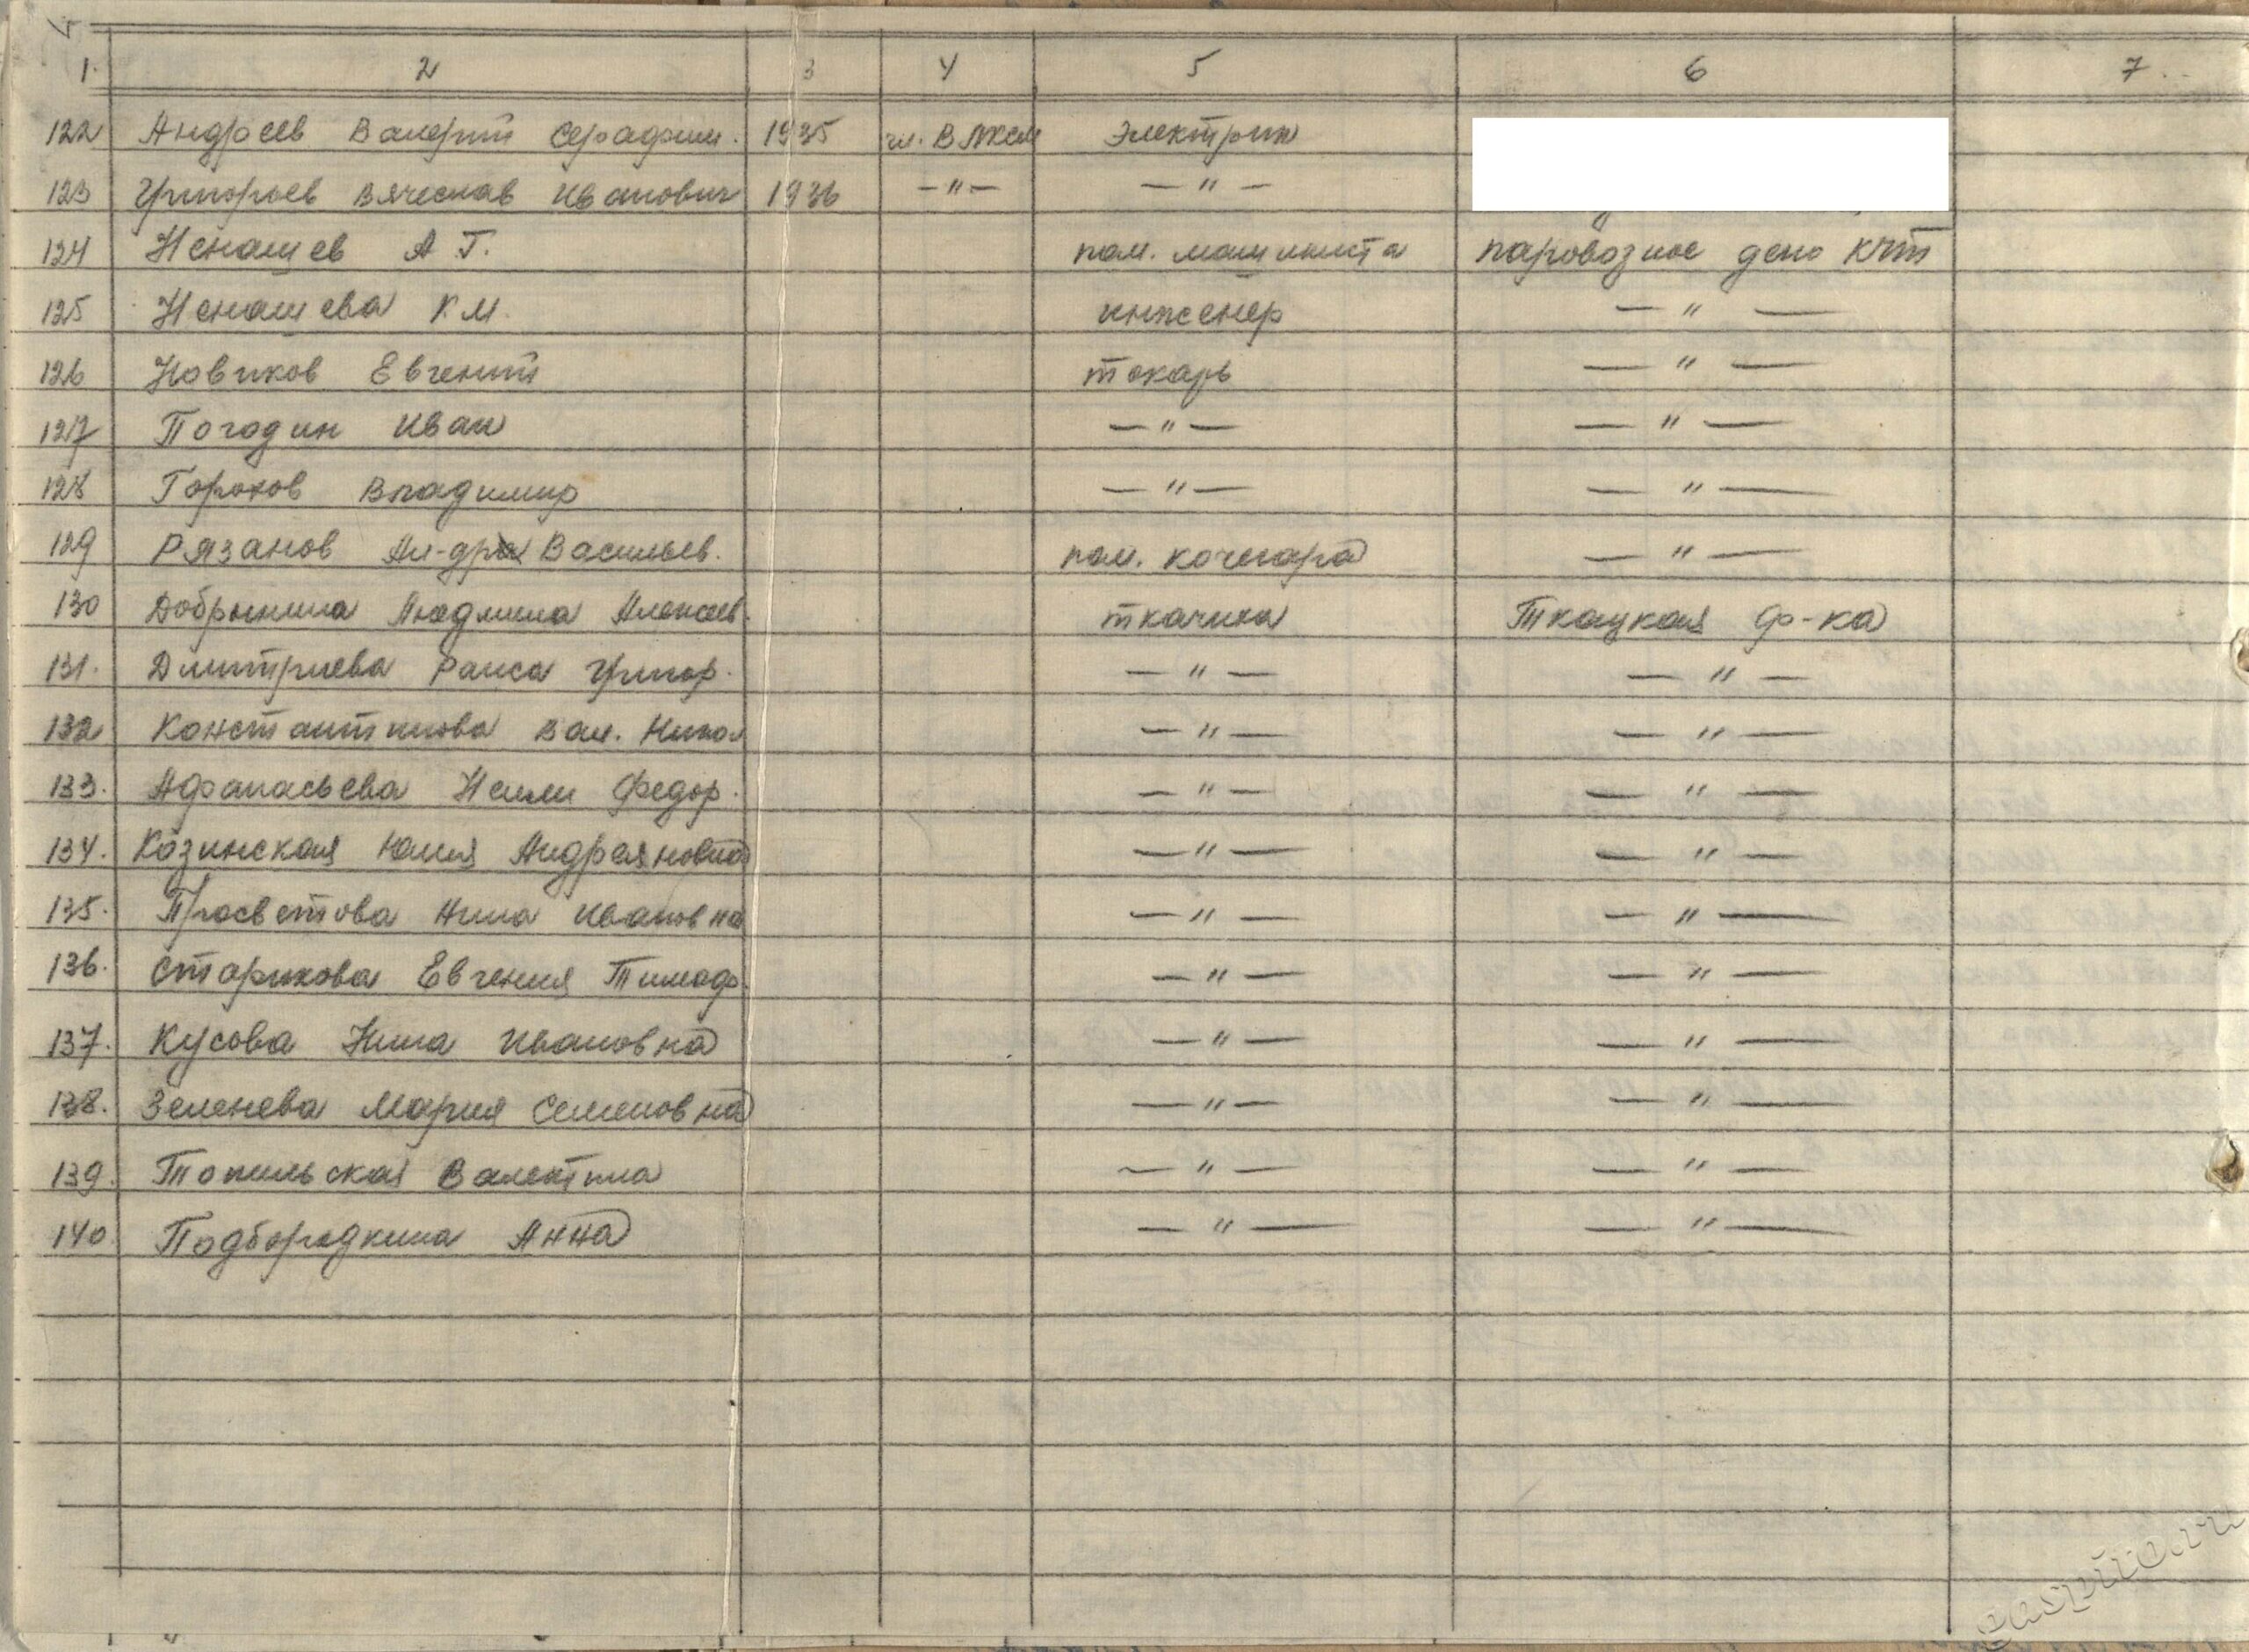 1. 2 3 4 5 6 7.
122 Андреев Валерий Серафим. 1935 чл. ВЛКСМ Электрик
123 Григорьев Вячеслав Иванович 1936 —"— —"—
124 Ненашев А Г. пом. машиниста паровозное депо
125 Ненашева К М. инженер —"—
126 Новиков Евгений токарь —"—
127 Погодин Иван —"— —"—
128 Горохов Владимир —"— —"—
129 Рязанов Ал-др Васильев. пом. кочегара —"—
130 Добрынина Людмила Алексеев. ткачиха Ткацкая ф-ка
131. Дмитриева Раиса Григор. —"— —"—
132 Константинова Вал. Никол —"— —"—
133. Афанасьева Нелли Федор. —"— —"—
134. Казинская Юлия Андреяновна —"— —"—
135. Просветова Нина Ивановна —"— —"—
136. Старикова Евгения Тимоф. —"— —"—
137. Кусова Нина Ивановна —"— —"—
138. Зеленева Мария Семеновна —"— —"—
139. Топильская Валентина —"— —"—
140 Подбородкина Анна —"— —"—
gaspito.ru